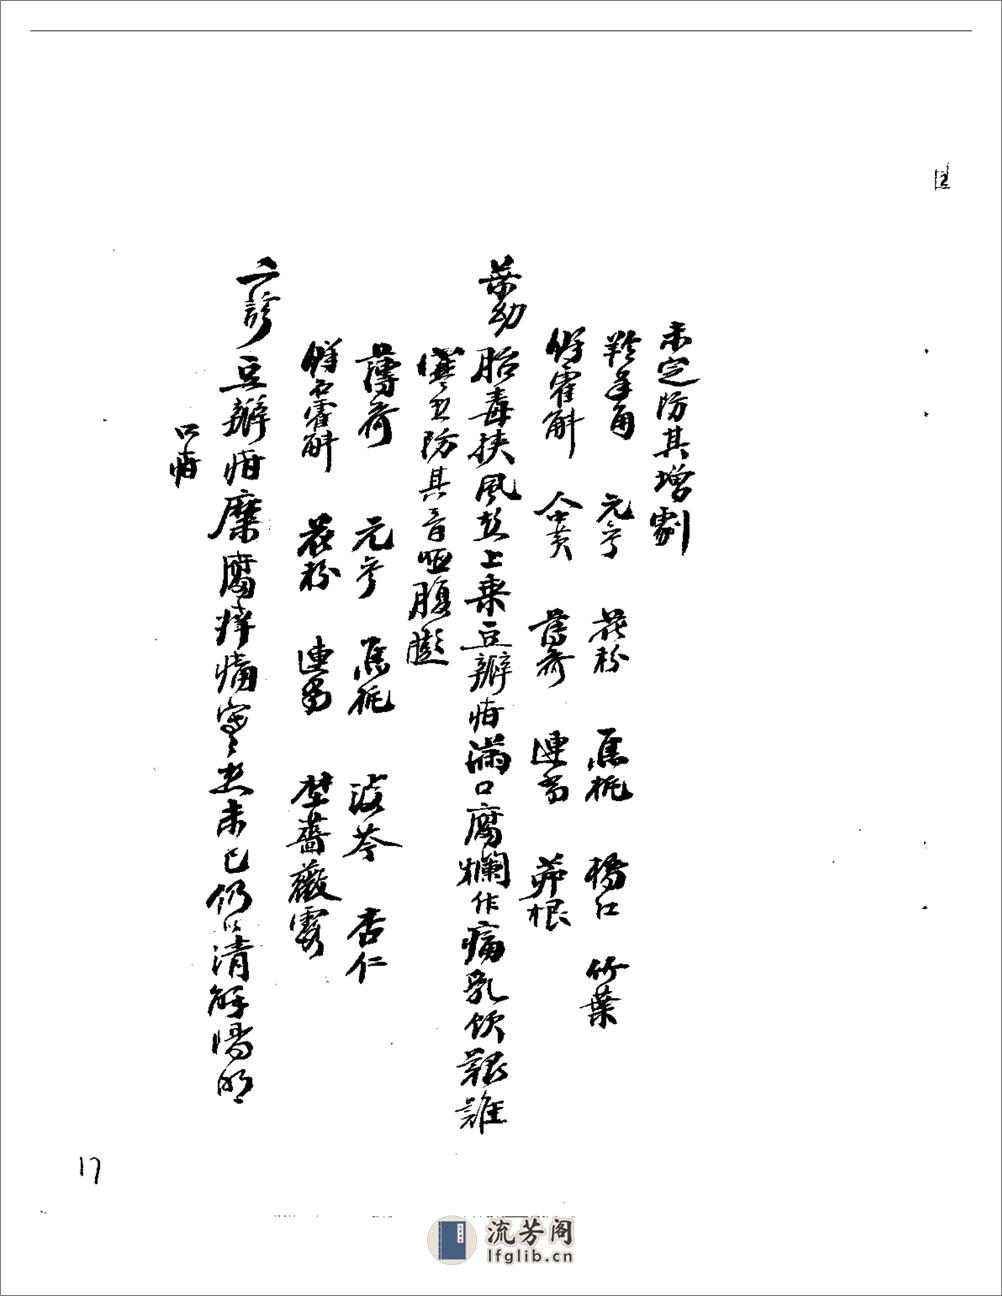 未定防其增劇
羚羊角 元參 花粉 焦梔 橘紅 竹葉
鮮霍斛 人中黃 薄荷 連翹 茅根
葉幼 胎毒挾風熱上乘豆瓣疳滿口腐爛作痛乳飲艱難
寒熱防其音啞腹膨
薄荷 元參 焦梔 淡芩 杏仁
鮮石霍斛 花粉 連翹 埜薔薇露
二診 豆瓣疳糜腐痒痛寒熱未已仍以清解陽明
口疳
17
流芳阁
lfglib.cn